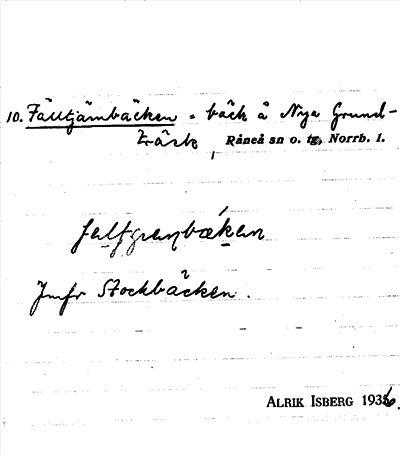 10. Fälltjärnbäcken = bäck å Nya Grund-
träsk, Råneå sn o. tg, Norrb. l.
Jmfr Stockbäcken.
ALRIK ISBERG 1936.